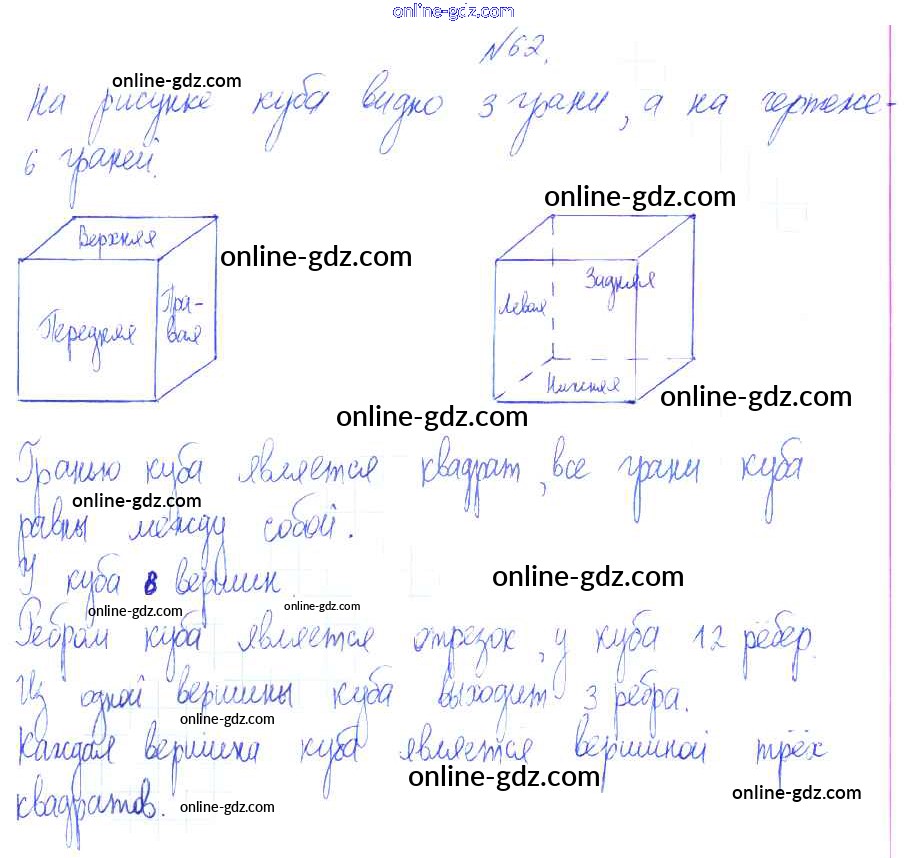 online-gdz.com
№62.
online-gdz.com
На рисунке куба видно 3 грани, а на чертеже-
6 граней.
online-gdz.com
Верхняя
online-gdz.com
Задняя
Пра-
вая
Левая
Передняя
Нижняя
online-gdz.com
online-gdz.com
Гранью куба является квадрат, все грани куба
online-gdz.com
равны между собой.
У куба 8 вершин
online-gdz.com
online-gdz.com
online-gdz.com
Ребром куба является отрезок, у куба 12 рёбер.
Из одной вершины куба выходит 3 ребра.
online-gdz.com
Каждая вершина куба является вершиной трёх
online-gdz.com
online-gdz.com
квадратов.
online-gdz.com